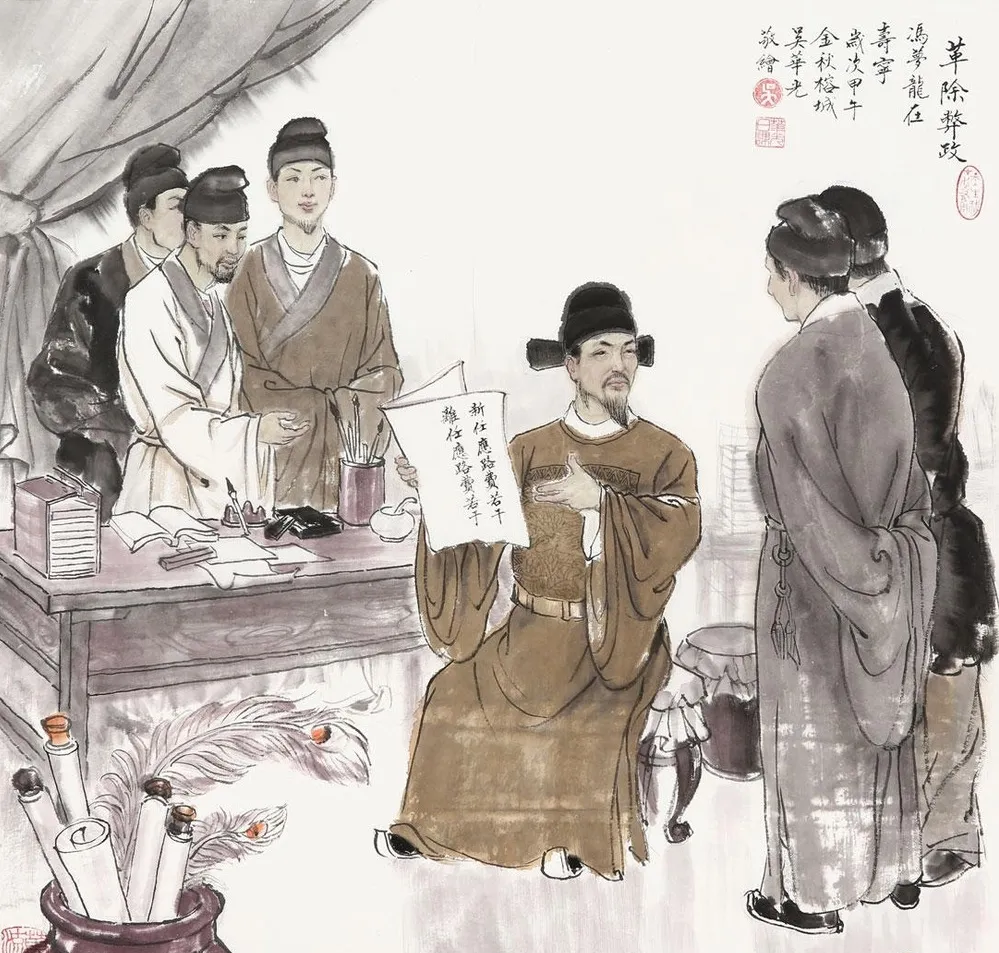 革除弊政
馮夢龍在
壽寧
歲次甲午
金秋榕城
吳華光
敬繪
吳
新任應路費若干
離任應路費若干